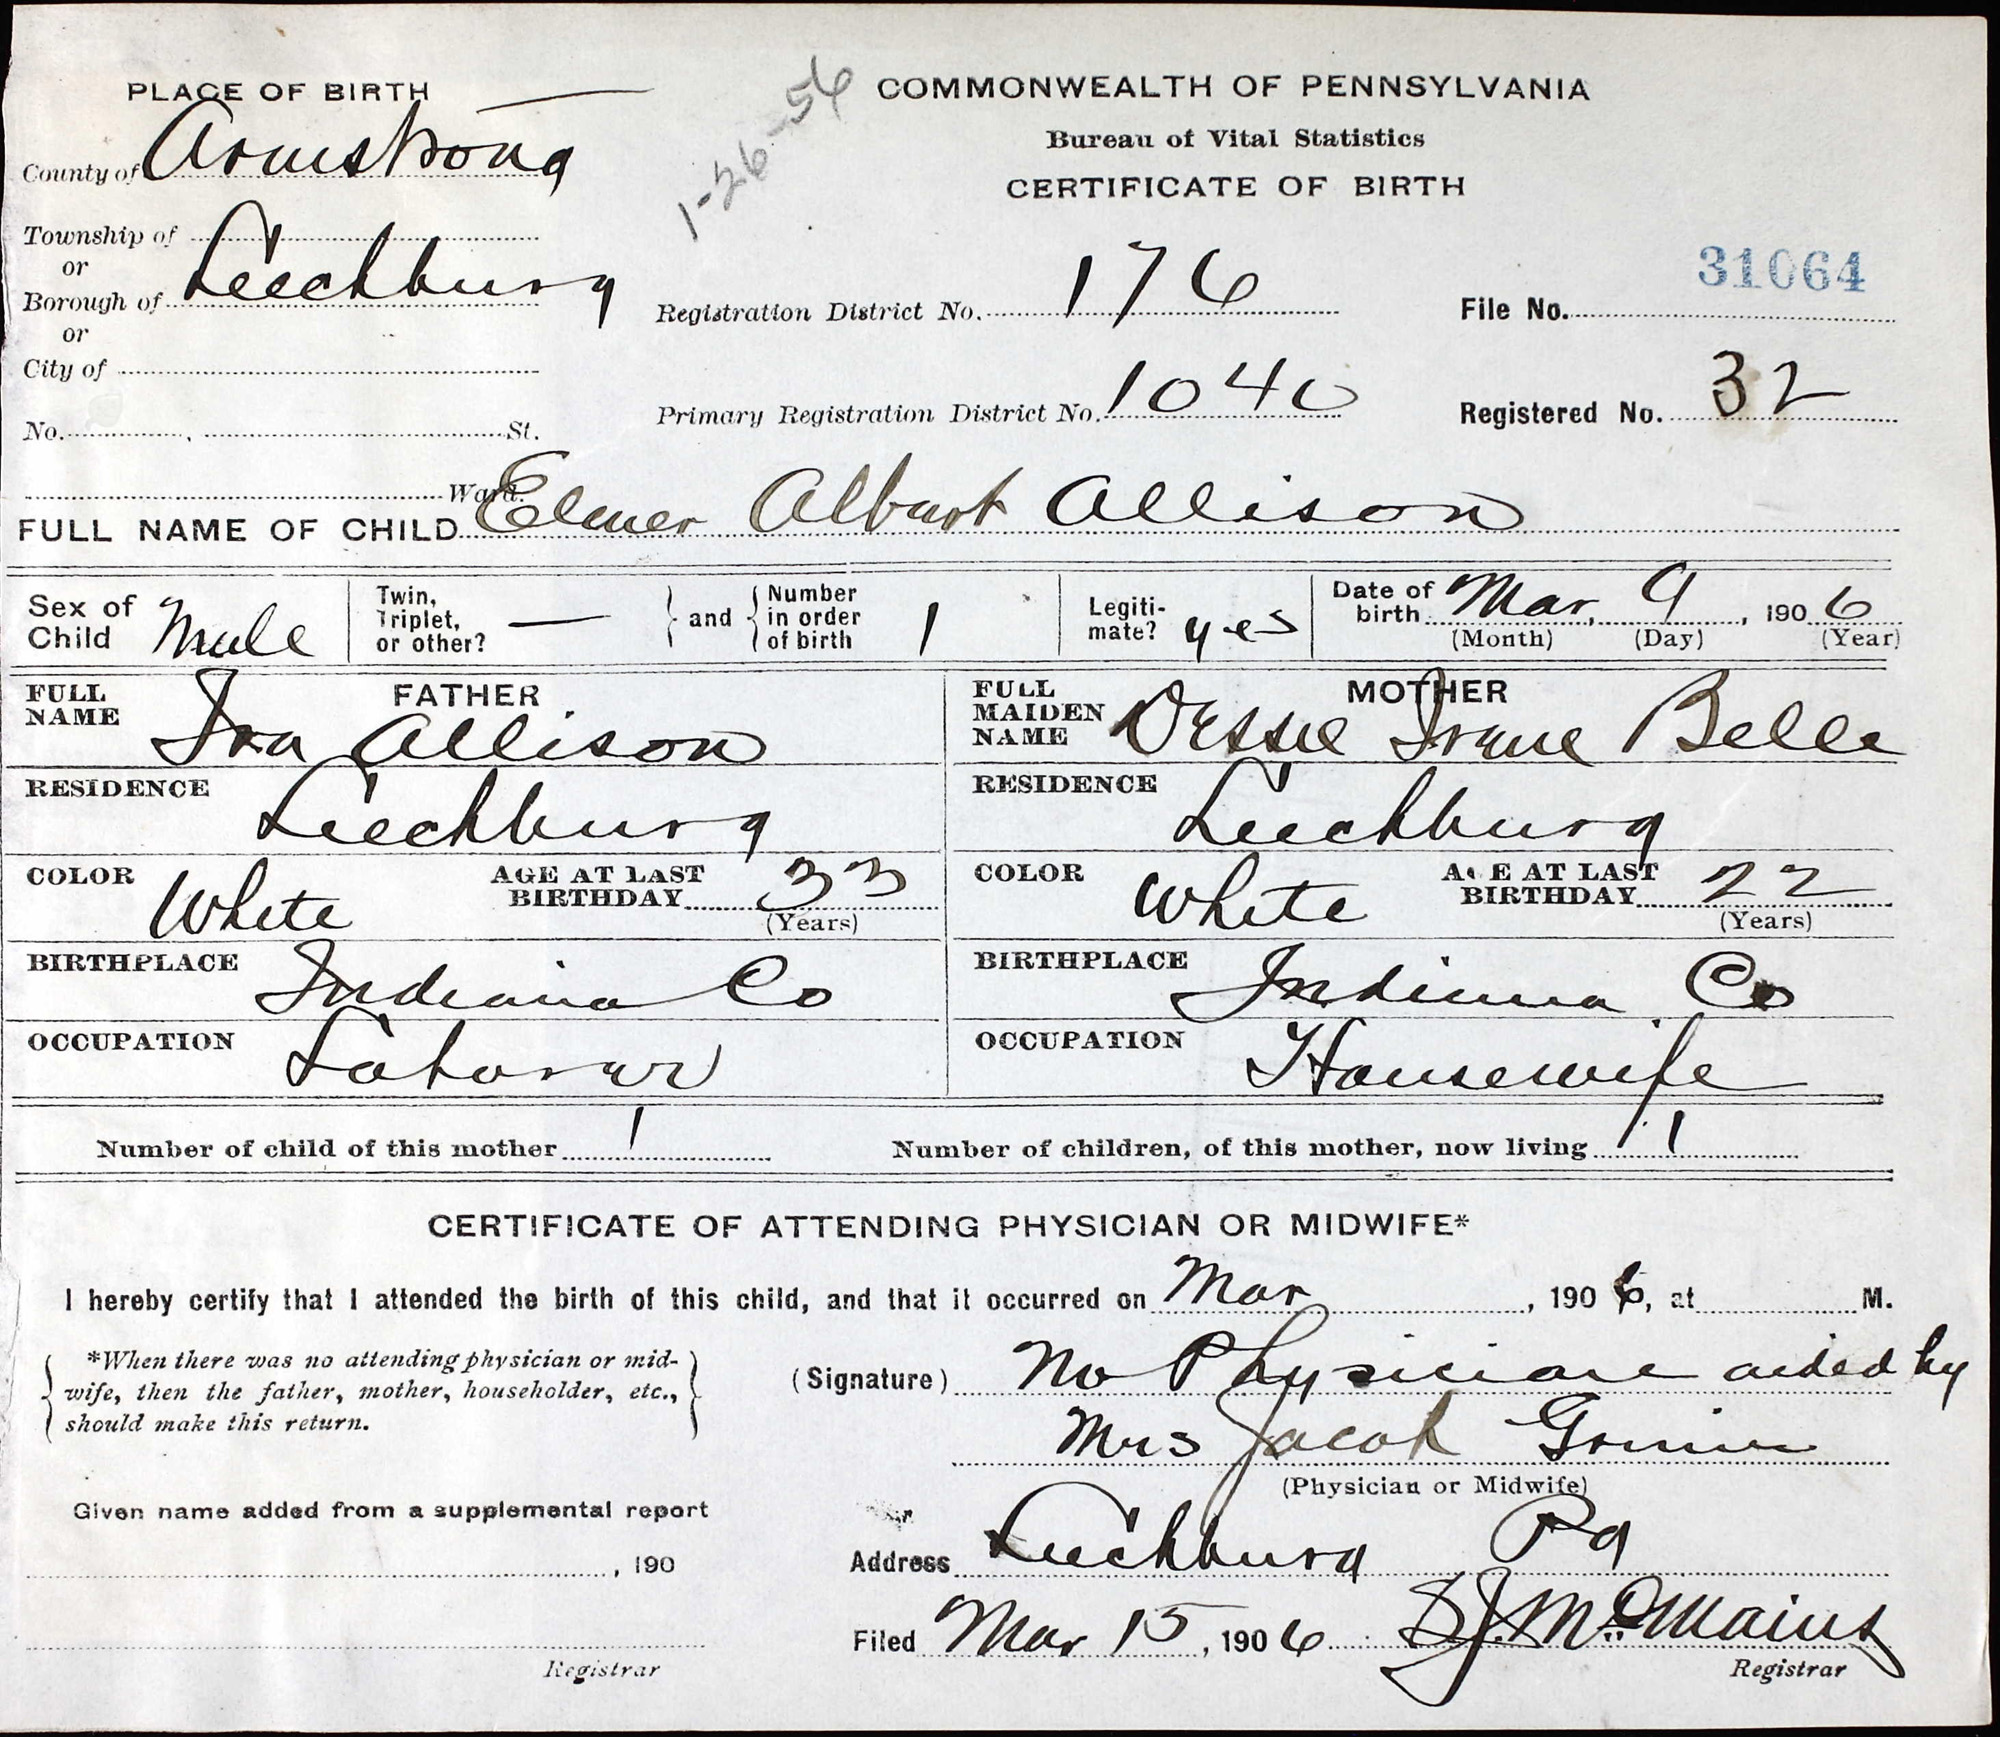 PLACE OF BIRTH
County of Armstrong
Township of
or
Borough of Leechburg
or
City of
No. , St.
Ward.
1-26-56
COMMONWEALTH OF PENNSYLVANIA
Bureau of Vital Statistics
CERTIFICATE OF BIRTH
31064
Registration District No. 176 File No.
Primary Registration District No. 1040 Registered No. 32
FULL NAME OF CHILD Elmer Albert Allison
Sex of Child Male
Twin, Triplet, or other? — and Number in order of birth 1
Legitimate? yes
Date of birth Mar, 9, 1906
(Month) (Day) (Year)
FATHER
FULL NAME Ira Allison
RESIDENCE Leechburg
COLOR White AGE AT LAST BIRTHDAY 33
(Years)
BIRTHPLACE Indiana Co
OCCUPATION Laborer
MOTHER
FULL MAIDEN NAME Dessie Irene Belle
RESIDENCE Leechburg
COLOR White AGE AT LAST BIRTHDAY 22
(Years)
BIRTHPLACE Indiana Co
OCCUPATION Housewife
Number of child of this mother 1 Number of children, of this mother, now living 1
CERTIFICATE OF ATTENDING PHYSICIAN OR MIDWIFE*
I hereby certify that I attended the birth of this child, and that it occurred on Mar , 1906, at M.
*When there was no attending physician or mid-
wife, then the father, mother, householder, etc.,
should make this return.
(Signature) No Physician aided by
Mrs Jacob
(Physician or Midwife)
Given name added from a supplemental report
, 190
Registrar
Address Leechburg Pa
Filed Mar 15, 1906
Registrar